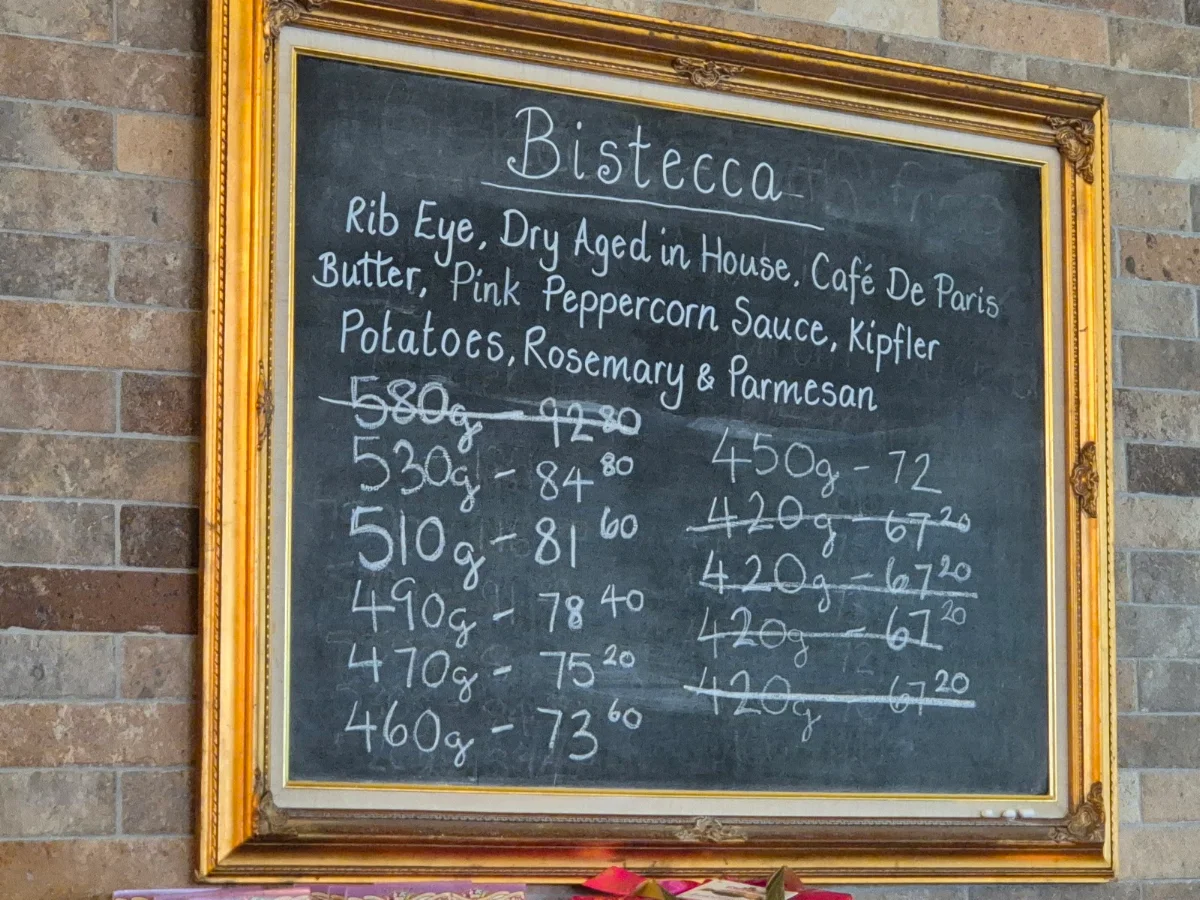 Bistecca
Rib Eye, Dry Aged in House, Café De Paris
Butter, Pink Peppercorn Sauce, Kipfler
Potatoes, Rosemary & Parmesan
580g - 92 80
530g - 84 80
510g - 81 60
490g - 78 40
470g - 75 20
460g - 73 60
450g - 72
420g - 67 20
420g - 67 20
420g - 67 20
420g - 67 20